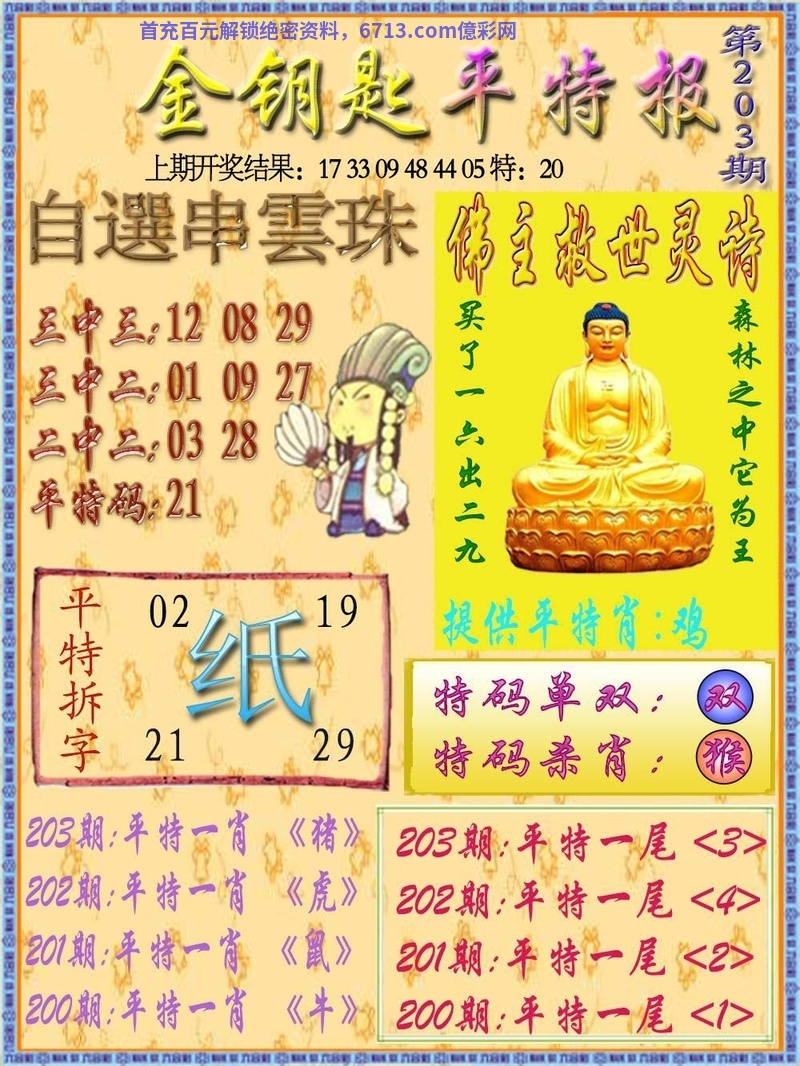 首充百元解锁绝密资料，6713.com億彩网
金钥匙平特报
第203期
上期开奖结果：17 33 09 48 44 05 特：20
自選串雲珠
三中三：12 08 29
三中二：01 09 27
二中二：03 28
单特码：21
佛主救世灵诗
买了一六出二九
森林之中它为王
提供平特肖：鸡
平特拆字
02 19
纸
21 29
特码单双：双
特码杀肖：猴
203期：平特一肖 《猪》
202期：平特一肖 《虎》
201期：平特一肖 《鼠》
200期：平特一肖 《牛》
203期：平特一尾 <3>
202期：平特一尾 <4>
201期：平特一尾 <2>
200期：平特一尾 <1>